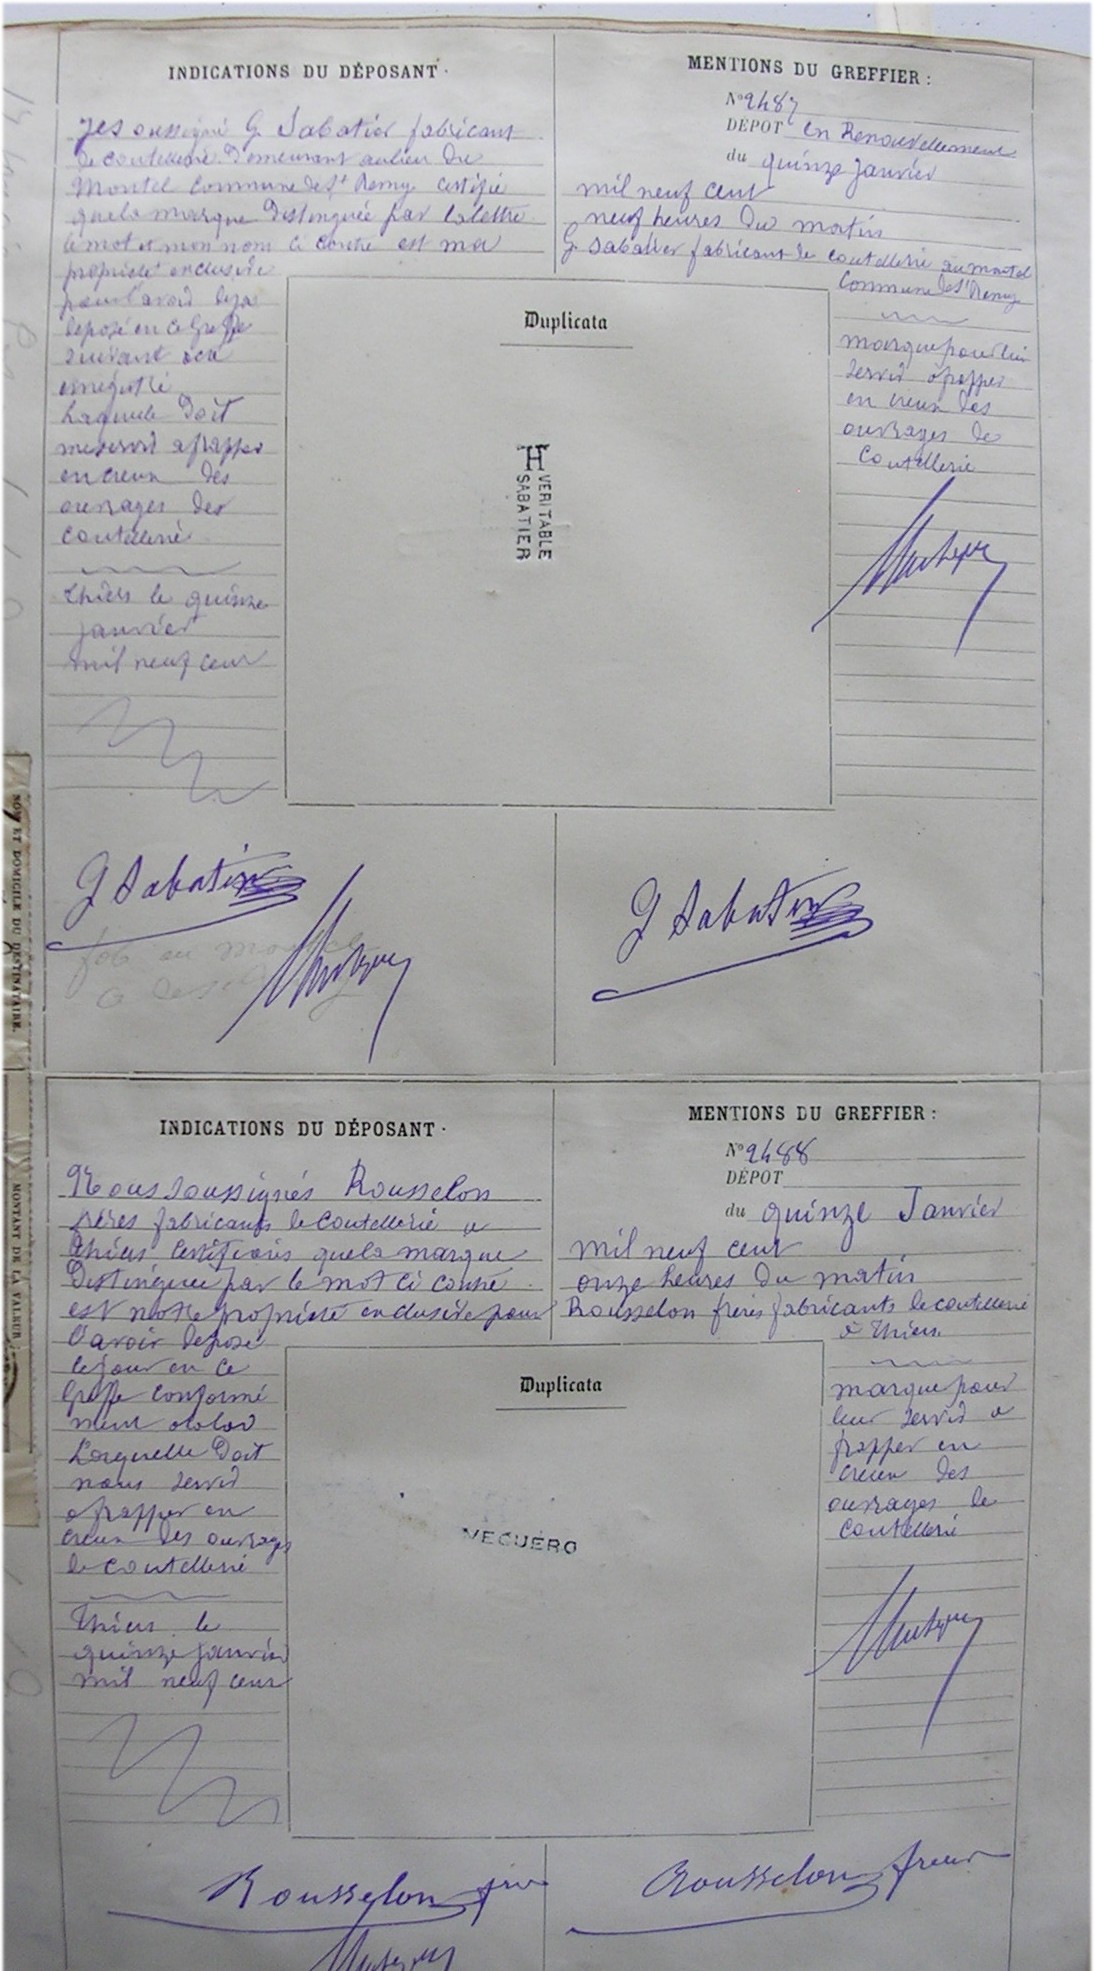 INDICATIONS DU DÉPOSANT.
Je soussigné G. Sabatier fabricant
de coutellerie Demeurant au lieu du
Montel Commune de St Remy certifie
que la marque Distinguée par la lettre
le mot et mon nom ci contre est ma
propriété exclusive
pour l'avoir deja
deposé en ce Greffe
suivant
enregistré
Laquelle Doit
me servir a frapper
en creux des
ouvrages de
coutellerie
Thiers le quinze
janvier
mil neuf cent
MENTIONS DU GREFFIER :
N° 2487
DÉPOT en Renouvellement
du quinze janvier
mil neuf cent
neuf heures du matin
G. Sabatier fabricant de coutellerie au montel
Commune de St Remy
marque pour lui
servir a frapper
en creux des
ouvrages de
Coutellerie
Duplicata
H
VERITABLE
SABATIER
G Sabatier
G Sabatier
INDICATIONS DU DÉPOSANT.
Nous soussignés Rousselon
frères fabricants de coutellerie a
Thiers Certifions que la marque
Distinguée par le mot ci contre
est notre propriété exclusive pour
l'avoir deposé
ce jour en ce
Greffe conformé
ment a la loi
Laquelle Doit
nous servir
a frapper en
creux des ouvrages
de coutellerie
Thiers le
quinze janvier
mil neuf cent
MENTIONS DU GREFFIER :
N° 2488
DÉPOT
du quinze Janvier
mil neuf cent
onze heures du matin
Rousselon frères fabricants de coutellerie
a Thiers
marque pour
leur servir a
frapper en
creux des
ouvrages de
Coutellerie
Duplicata
VEGUERO
Rousselon frères
Rousselon frères
NOM ET DOMICILE DU DESTINATAIRE.
MONTANT DE LA VALEUR